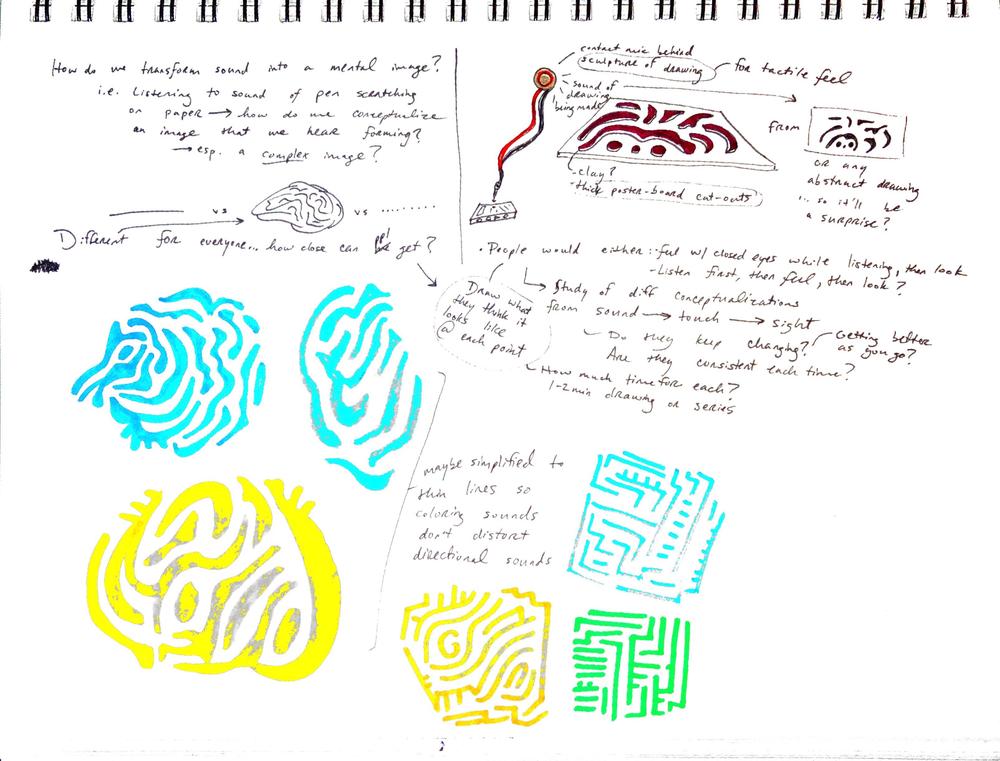 How do we transform sound into a mental image?
i.e. Listening to sound of pen scratching
on paper → how do we conceptualize
an image that we hear forming?
→ esp. a complex image?
vs
vs ........
Different for everyone... how close can we get?
contact mic behind
sculpture of drawing
for tactile feel
sound of
drawing
being made
from
-clay?
-thick poster-board cut-outs
or any
abstract drawing
... so it'll be
a surprise?
• People would either: - feel w/ closed eyes while listening, then look
- Listen first, then feel, then look?
Draw what
they think it
looks like
@ each point
Study of diff conceptualizations
from sound → touch → sight
- Do they keep changing?
Getting better
as you go?
Are they consistent each time?
How much time for each?
1-2 min drawing or series
maybe simplified to
thin lines so
coloring sounds
don't distort
directional sounds